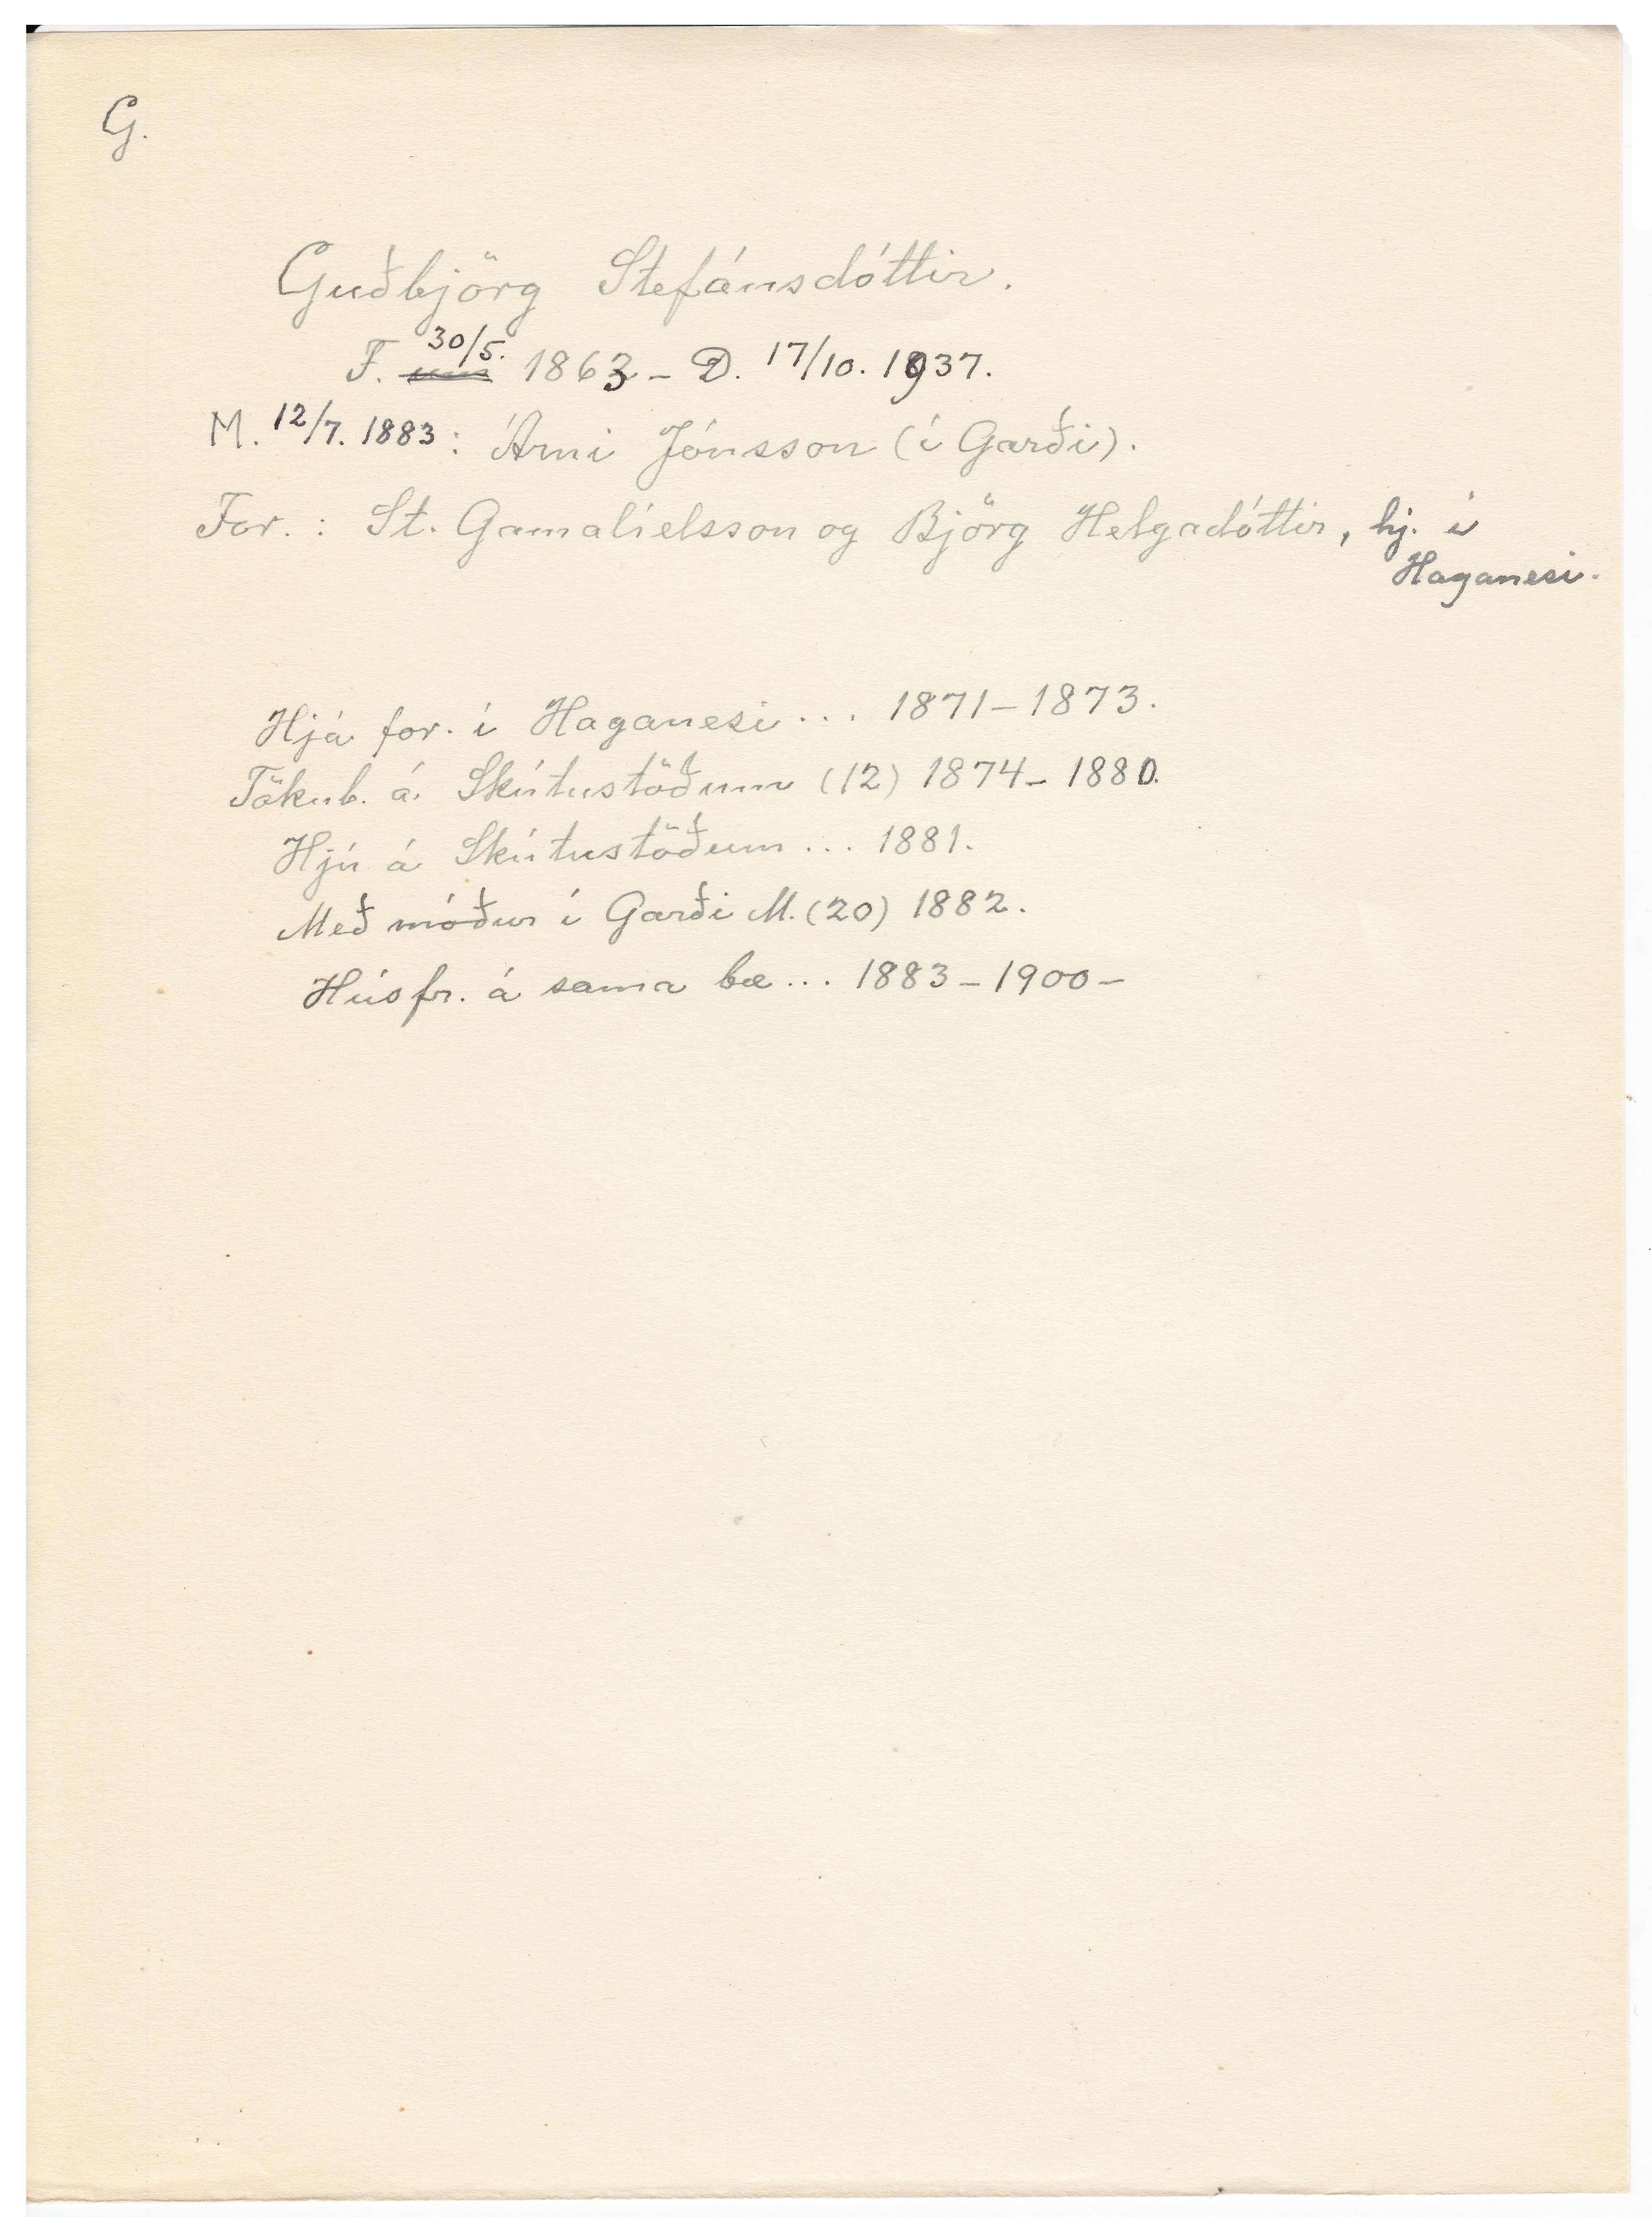 G.
Guðbjörg Stefánsdóttir.
F. 30/5. 1863 – D. 17/10. 1937.
M. 12/7. 1883: Árni Jónsson (í Garði).
For.: St. Gamalíelsson og Björg Helgadóttir, hj. í
Haganesi.
Hjá for. í Haganesi ... 1871–1873.
Tökub. á Skútustöðum (12) 1874–1880.
Hjú á Skútustöðum ... 1881.
Með móður í Garði M. (20) 1882.
Húsfr. á sama bæ ... 1883–1900–